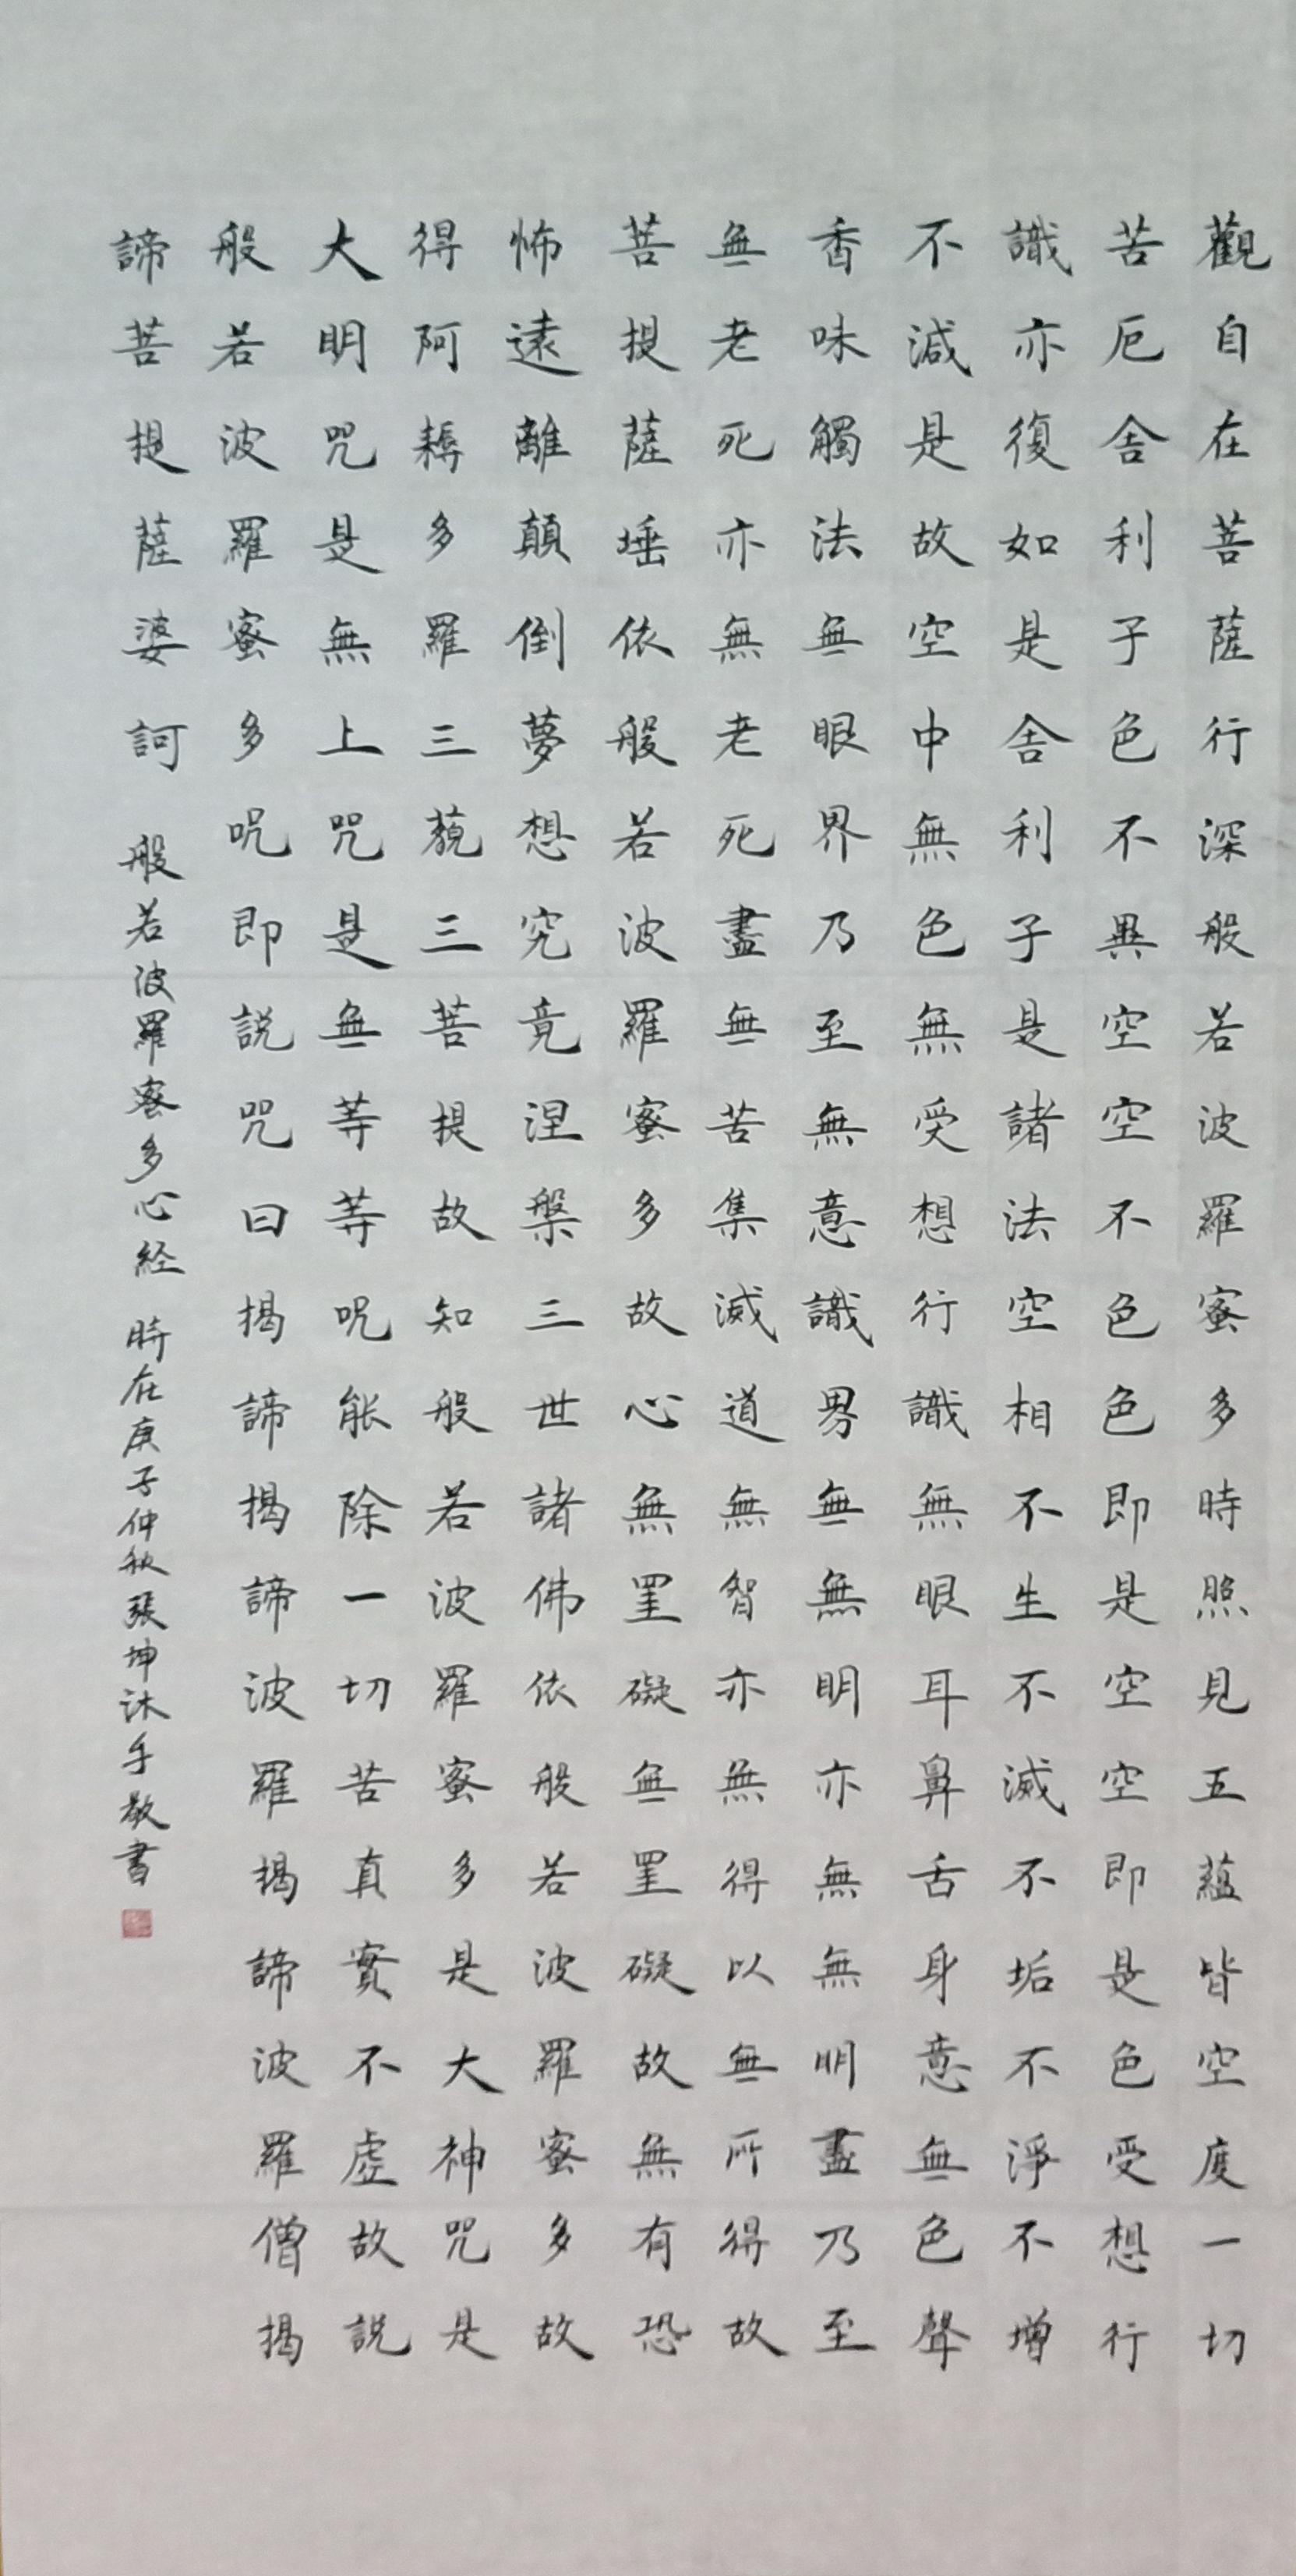 觀自在菩薩行深般若波羅蜜多時照見五蘊皆空度一切
苦厄舍利子色不異空空不色色即是空空即是色受想行
識亦復如是舍利子是諸法空相不生不滅不垢不淨不增
不減是故空中無色無受想行識無眼耳鼻舌身意無色聲
香味觸法無眼界乃至無意識界無無明亦無無明盡乃至
無老死亦無老死盡無苦集滅道無智亦無得以無所得故
菩提薩埵依般若波羅蜜多故心無罣礙無罣礙故無有恐
怖遠離顛倒夢想究竟涅槃三世諸佛依般若波羅蜜多故
得阿耨多羅三藐三菩提故知般若波羅蜜多是大神咒是
大明咒是無上咒是無等等呪能除一切苦真實不虛故說
般若波羅蜜多呪即說咒曰揭諦揭諦波羅揭諦波羅僧揭
諦菩提薩婆訶 般若波羅蜜多心経 時在庚子仲秋張坤沐手敬書